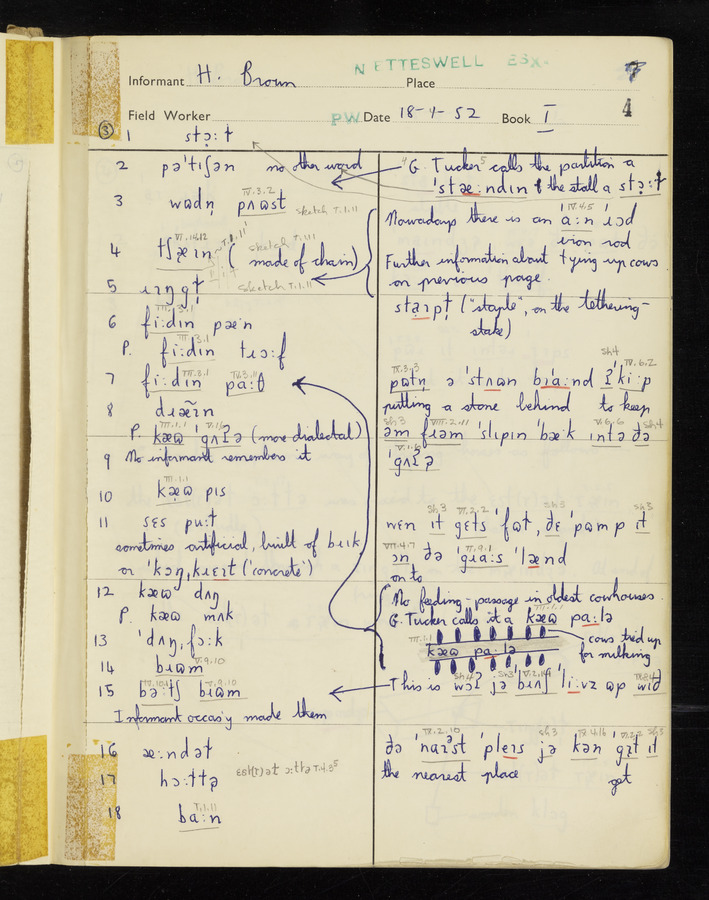 NETTESWELL ESX.
Informant H. Brown Place 7
4
Field Worker PW Date 18-4-52 Book I
③ 1 stɔ:ʈ
2 pə'tɪʃən no other word
3 wɒdn̩ pʌɷst IV.3.2 sketch I.1.11
4 tʃæɪn (made of chain) sketch I.1.11
5 sketch I.1.11
6 fi:dɪn pæɪn
P. fi:dɪn tɹɔ:f
7 fi:dɪn pa:θ
8 dɹæɪn
P. kæɷ 'gʌʔə (more dialectal)
9 No informant remembers it
10 kæɷ pɪs
11 sɛs pɪt
sometimes artificial, built of bɹɪk
or 'kɔŋ,kɹɛɪt ('concrete')
12 kæɷ dʌŋ
P. kæɷ mʌk
13 'dʌŋ,fɔ:k
14 bɹɷm V.9.10
15 bə:tʃ bɹɷm V.9.10
Informant occas'y made them
16 æ:ndət
17 hɔ:ttə
18 ba:n I.1.11
G. Tucker calls the partition a
'stæ:ndɪn & the stall a stɔ:ʈ
Nowadays there is an a:n ɹɔd
iron rod
Further information about tying up cows
on previous page.
staɪpʈ ("staple", on the tethering-
stake)
pɷtn̩ ə 'stʌɷn bɪa:nd ʔ'ki:p
putting a stone behind to keep
əm fɹəm 'slɪpɪn 'bæ:k ɪntə ðə
'gʌʔə
wɛn ɪt gɛts 'fɷt, ðɛ 'pɷmp ɪt
ɔn ðə 'gɹa:s 'lænd
on to
No feeding-passage in oldest cowhouses.
G. Tucker calls it a kæɷ pa:lə
kæɷ pa:lə
cows tied up
for milking
This is wɔʔ jə bɪnʃ 'li:vz ɷp wɪð
ðə 'naɪəst 'plɛɪs jə kən 'gɪt ɪt
the nearest place get